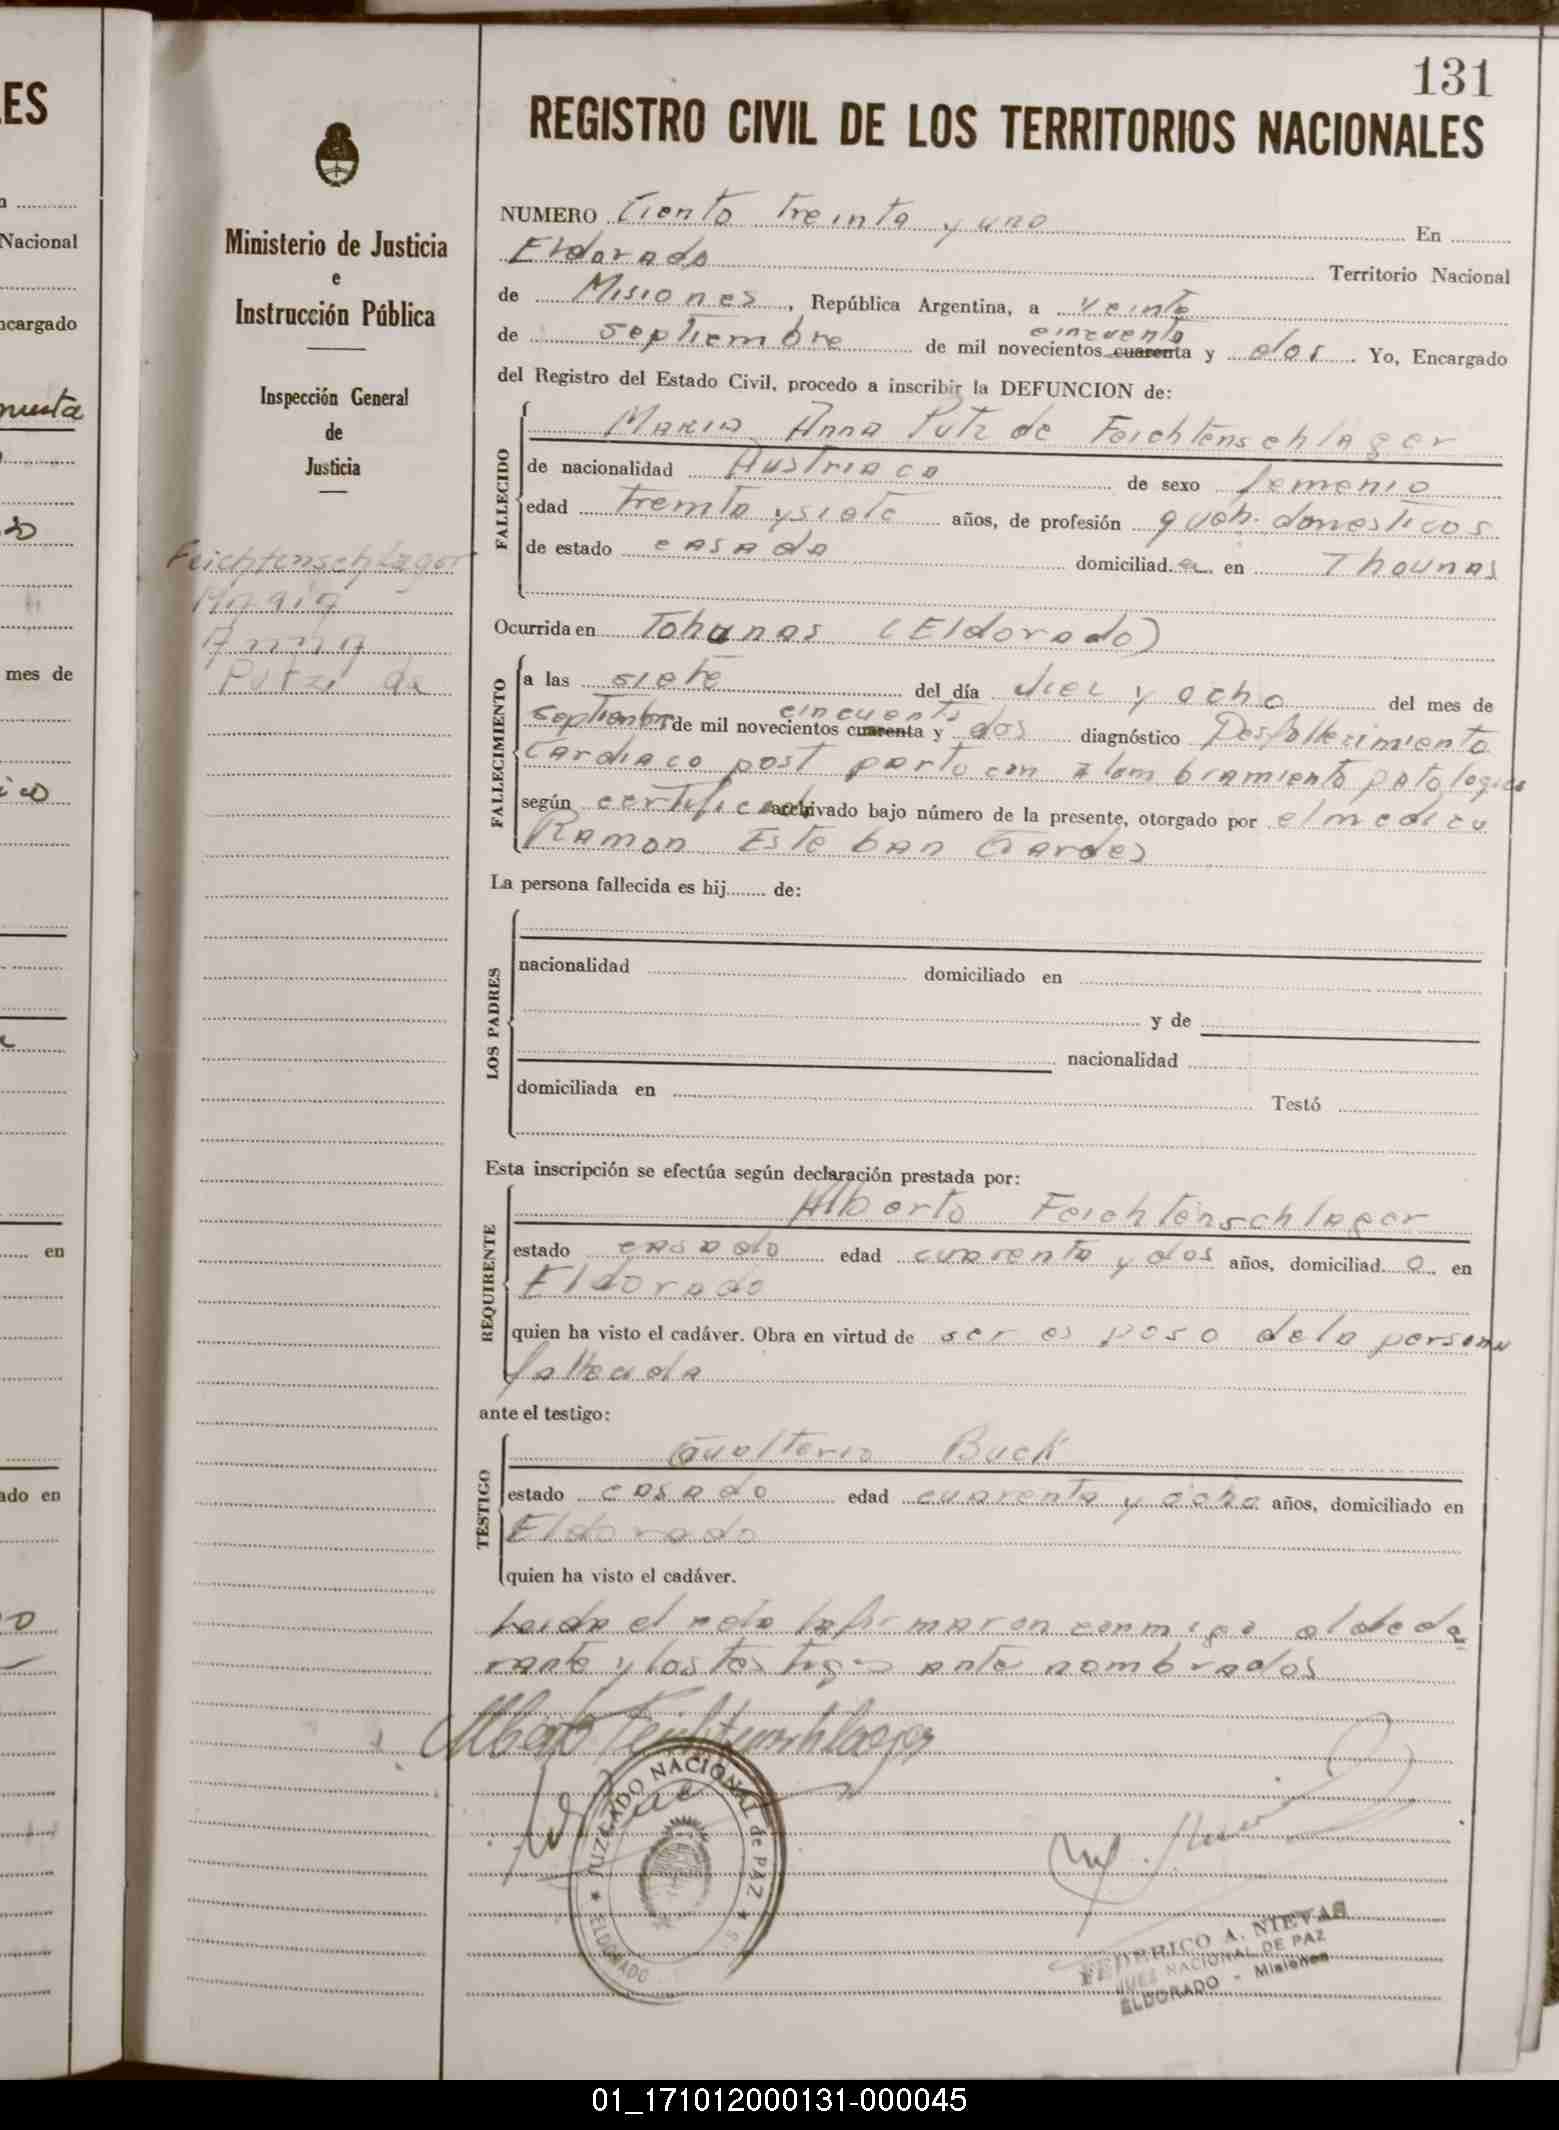 131
REGISTRO CIVIL DE LOS TERRITORIOS NACIONALES
ES
Nacional
ncargado
mes de
en
ado en
Ministerio de Justicia
e
Instrucción Pública
Inspección General
de
Justicia
Feichtenschlager
Maria
Anna
Putz de
NUMERO Ciento treinta y uno En
Eldorado Territorio Nacional
de Misiones, República Argentina, a veinte
de septiembre de mil novecientos cuarenta cincuenta y dos. Yo, Encargado
del Registro del Estado Civil, procedo a inscribir la DEFUNCION de:
FALLECIDO
Maria Anna Putz de Feichtenschlager
de nacionalidad Austriaca de sexo femenio
edad treinta y siete años, de profesión queh. domesticos
de estado casada domiciliad a en Thounas
Ocurrida en Tohunas (Eldorado)
FALLECIMIENTO
a las siete del día diez y ocho del mes de
septiembre de mil novecientos cuarenta cincuenta y dos diagnóstico Desfallecimiento
cardiaco post parto con alumbramiento patologico
según certificado archivado bajo número de la presente, otorgado por el medico
Ramon Esteban Garde
La persona fallecida es hij de:
LOS PADRES
nacionalidad domiciliado en
y de
nacionalidad
domiciliada en Testó
Esta inscripción se efectúa según declaración prestada por:
REQUIRENTE
Alberto Feichtenschlager
estado casado edad cuarenta y dos años, domiciliad o en
Eldorado
quien ha visto el cadáver. Obra en virtud de ser esposo de la persona
fallecida
ante el testigo:
TESTIGO
Gualterio Buck
estado casado edad cuarenta y ocho años, domiciliado en
Eldorado
quien ha visto el cadáver.
Leida el acta la firmaron conmigo el decla
rante y los testigos ante nombrados
Alberto Feichtenschlager
JUZGADO NACIONAL de PAZ
ELDORADO
FEDERICO A. NIEVAS
JUEZ NACIONAL DE PAZ
ELDORADO - Misiones
01_171012000131-000045